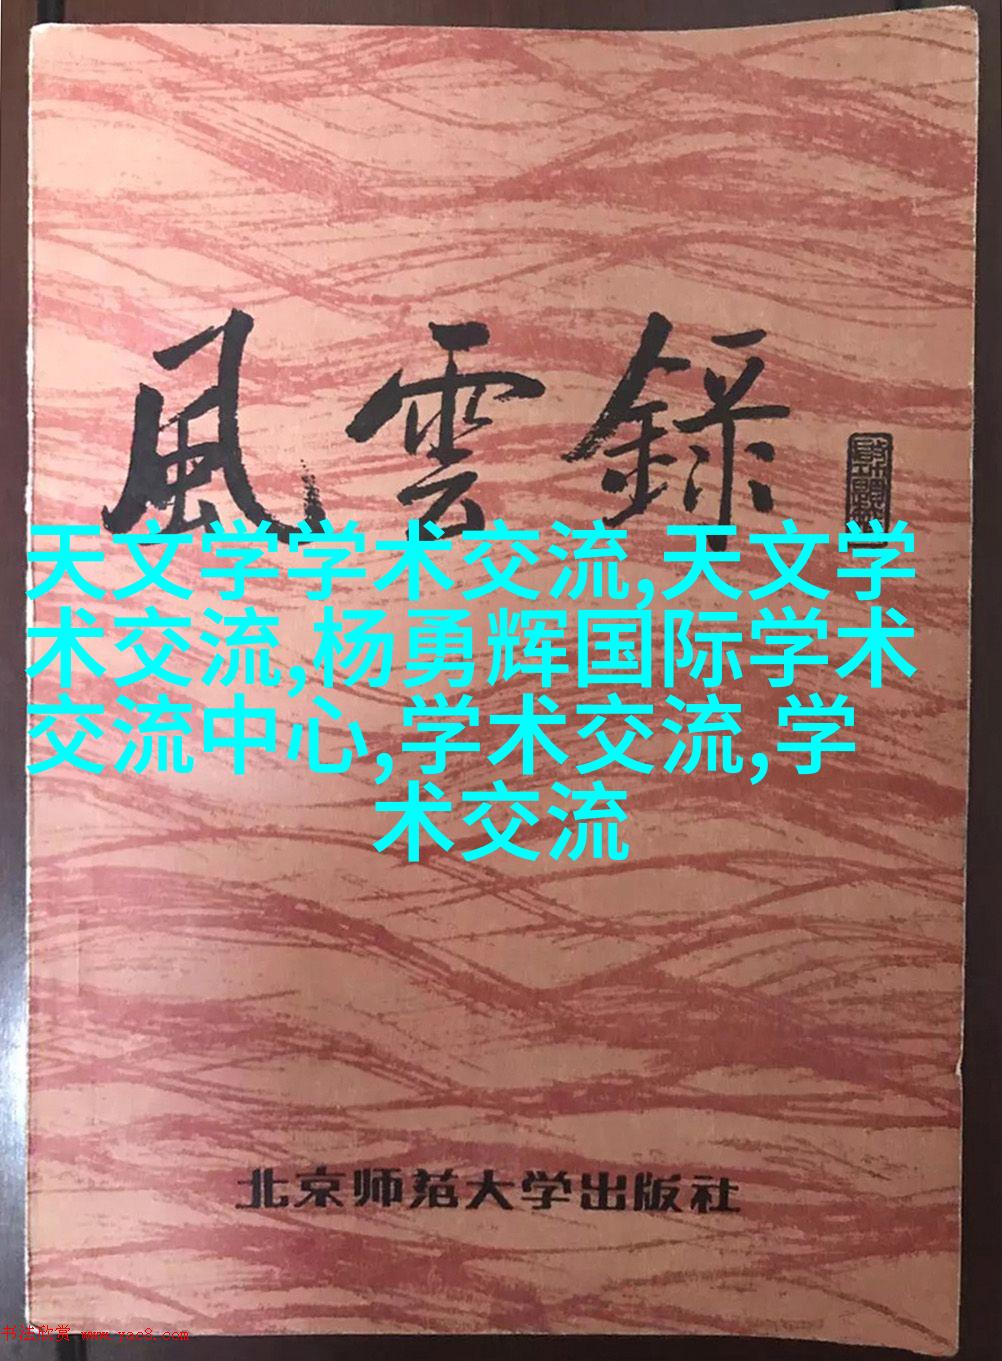 風雲録
天文学学术交流,天文学
术交流,杨勇辉国际学术
交流中心,学术交流,学
术交流
北京师范大学出版社
书法欣赏 www.yac8.com